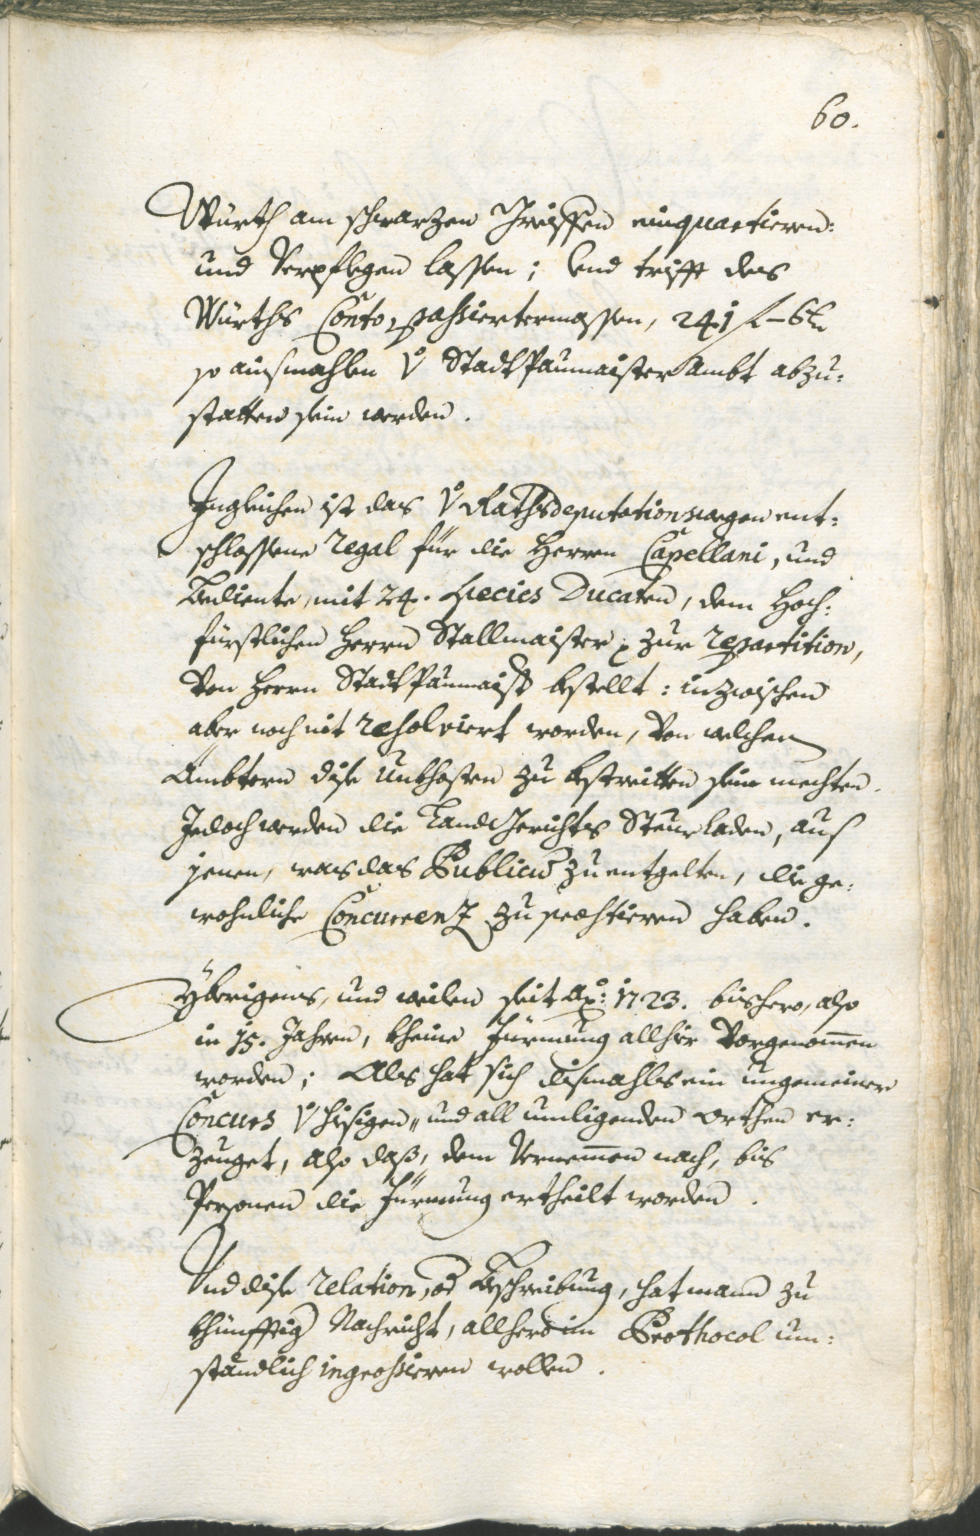 60.
Würth am schwarzen Greiffen einquartieren:
und Verpflegen lassen; Und trifft des
Würths Conto, passiertermassen, 241 f — 6 k
so ainsmahlen Vo Stadtpaumaister Ambt abzu:
statten sein werden.
Ingleichen ist das Vo Rathsdeputationswegen ent:
schlossene Regal für die Herren Capellani, und
Bediente, mit 24. Species Ducaten, dem Hoch:
fürstlichen Herrn Stallmaister, zur repartition,
Von Herrn Stadtpaumaistr bestellt: inzwischen
aber noch nit resolviert worden, Von welchen
Ämbtern dise Unkhosten zu bestreitten sein mechten.
Jedoch werden die Landgerichts Steurladen, aus
jenen, was das Publicum zu entgelten, die ge:
wohnliche Concurrenz zu praestieren haben.
Yberigens, und weilen seit Ao: 1723. bishero, also
in 15. Jahren, kheine Fürmung allhier Vorgenommen
worden; Als hat sich dismahls ein ungemeiner
Concurs Vo hisigen, und all umligenden Orthen er:
zeuget, also daß, dem Vernemmen nach, bis
Personen die Fürmung ertheilt worden.
Und dise relation, od Beschreibung, hat mann zu
khünfftig Nachricht, allhero im Prothocol um:
ständlich ingrossieren wollen.